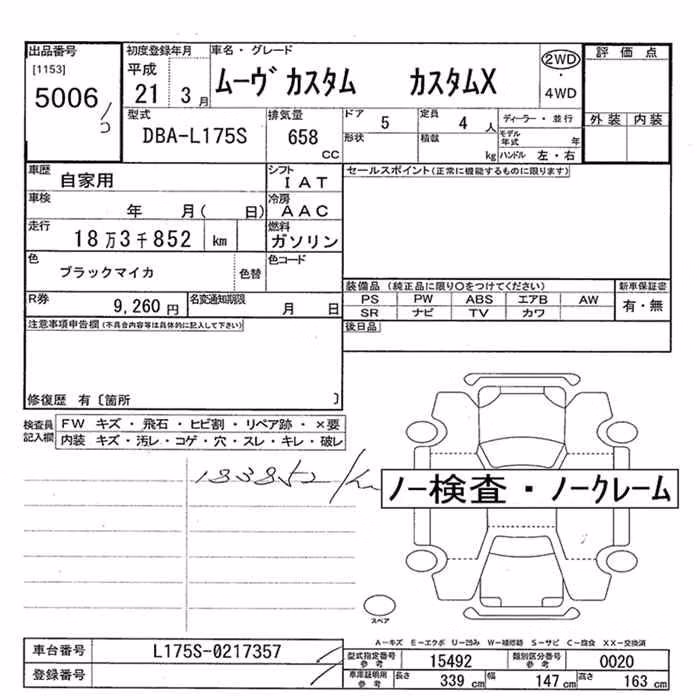 出品番号 初度登録年月 車名・グレード 評価点
[1153] 平成 ムーヴ カスタム カスタムX 2WD
5006 21 3月 ・ 4WD
型式 排気量 ドア 5 定員 4 人 ディーラー・並行 外装 内装
DBA-L175S 658 cc 形状 積載 kg モデル年式 年
ハンドル 左・右
車歴 自家用 シフト IAT セールスポイント(正常に機能するものに限ります)
車検 年 月( 日) 冷房 AAC
走行 18万3千852 km 燃料 ガソリン
色 ブラックマイカ 色替 色コード
装備品(純正品に限り○をつけてください) 新車保証書
R券 9,260円 名変通知期限 月 日 PS PW ABS エアB AW 有・無
SR ナビ TV カワ
注意事項申告欄(不具合内容等は具体的に記入して下さい) 後日品
修復歴 有〔箇所 〕
検査員記入欄 FW キズ・飛石・ヒビ割・リペア跡・×要
内装 キズ・汚レ・コゲ・穴・スレ・キレ・破レ
183852 km
ノー検査・ノークレーム
スペア
A-キズ E-エクボ U-凹み W-補修跡 S-サビ C-腐食 XX-交換済
車台番号 L175S-0217357 型式指定番号 参考 15492 類別区分番号 参考 0020
登録番号 車庫証明用 参考 長さ 339 cm 幅 147 cm 高さ 163 cm